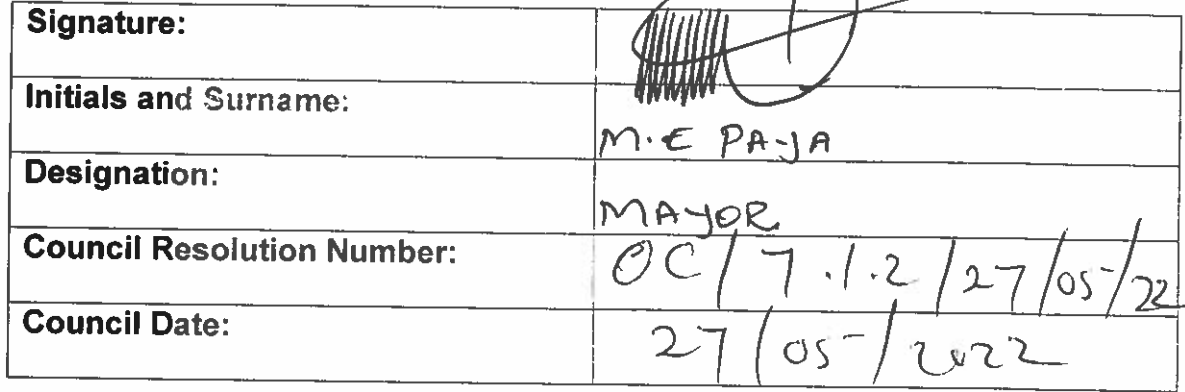 Signature:
Initials and Surname:
M.E PAJA
Designation:
MAYOR
Council Resolution Number:
OC/7.1.2/27/05/22
Council Date:
27/05/2022